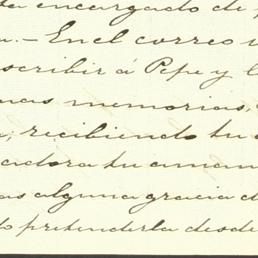 ta encargado de
a.— En el correo
scribir á Pepe y
nas memorias,
a, recibiendo tu
adora tu aman
as alguna gracia d
lo pretenderla desde